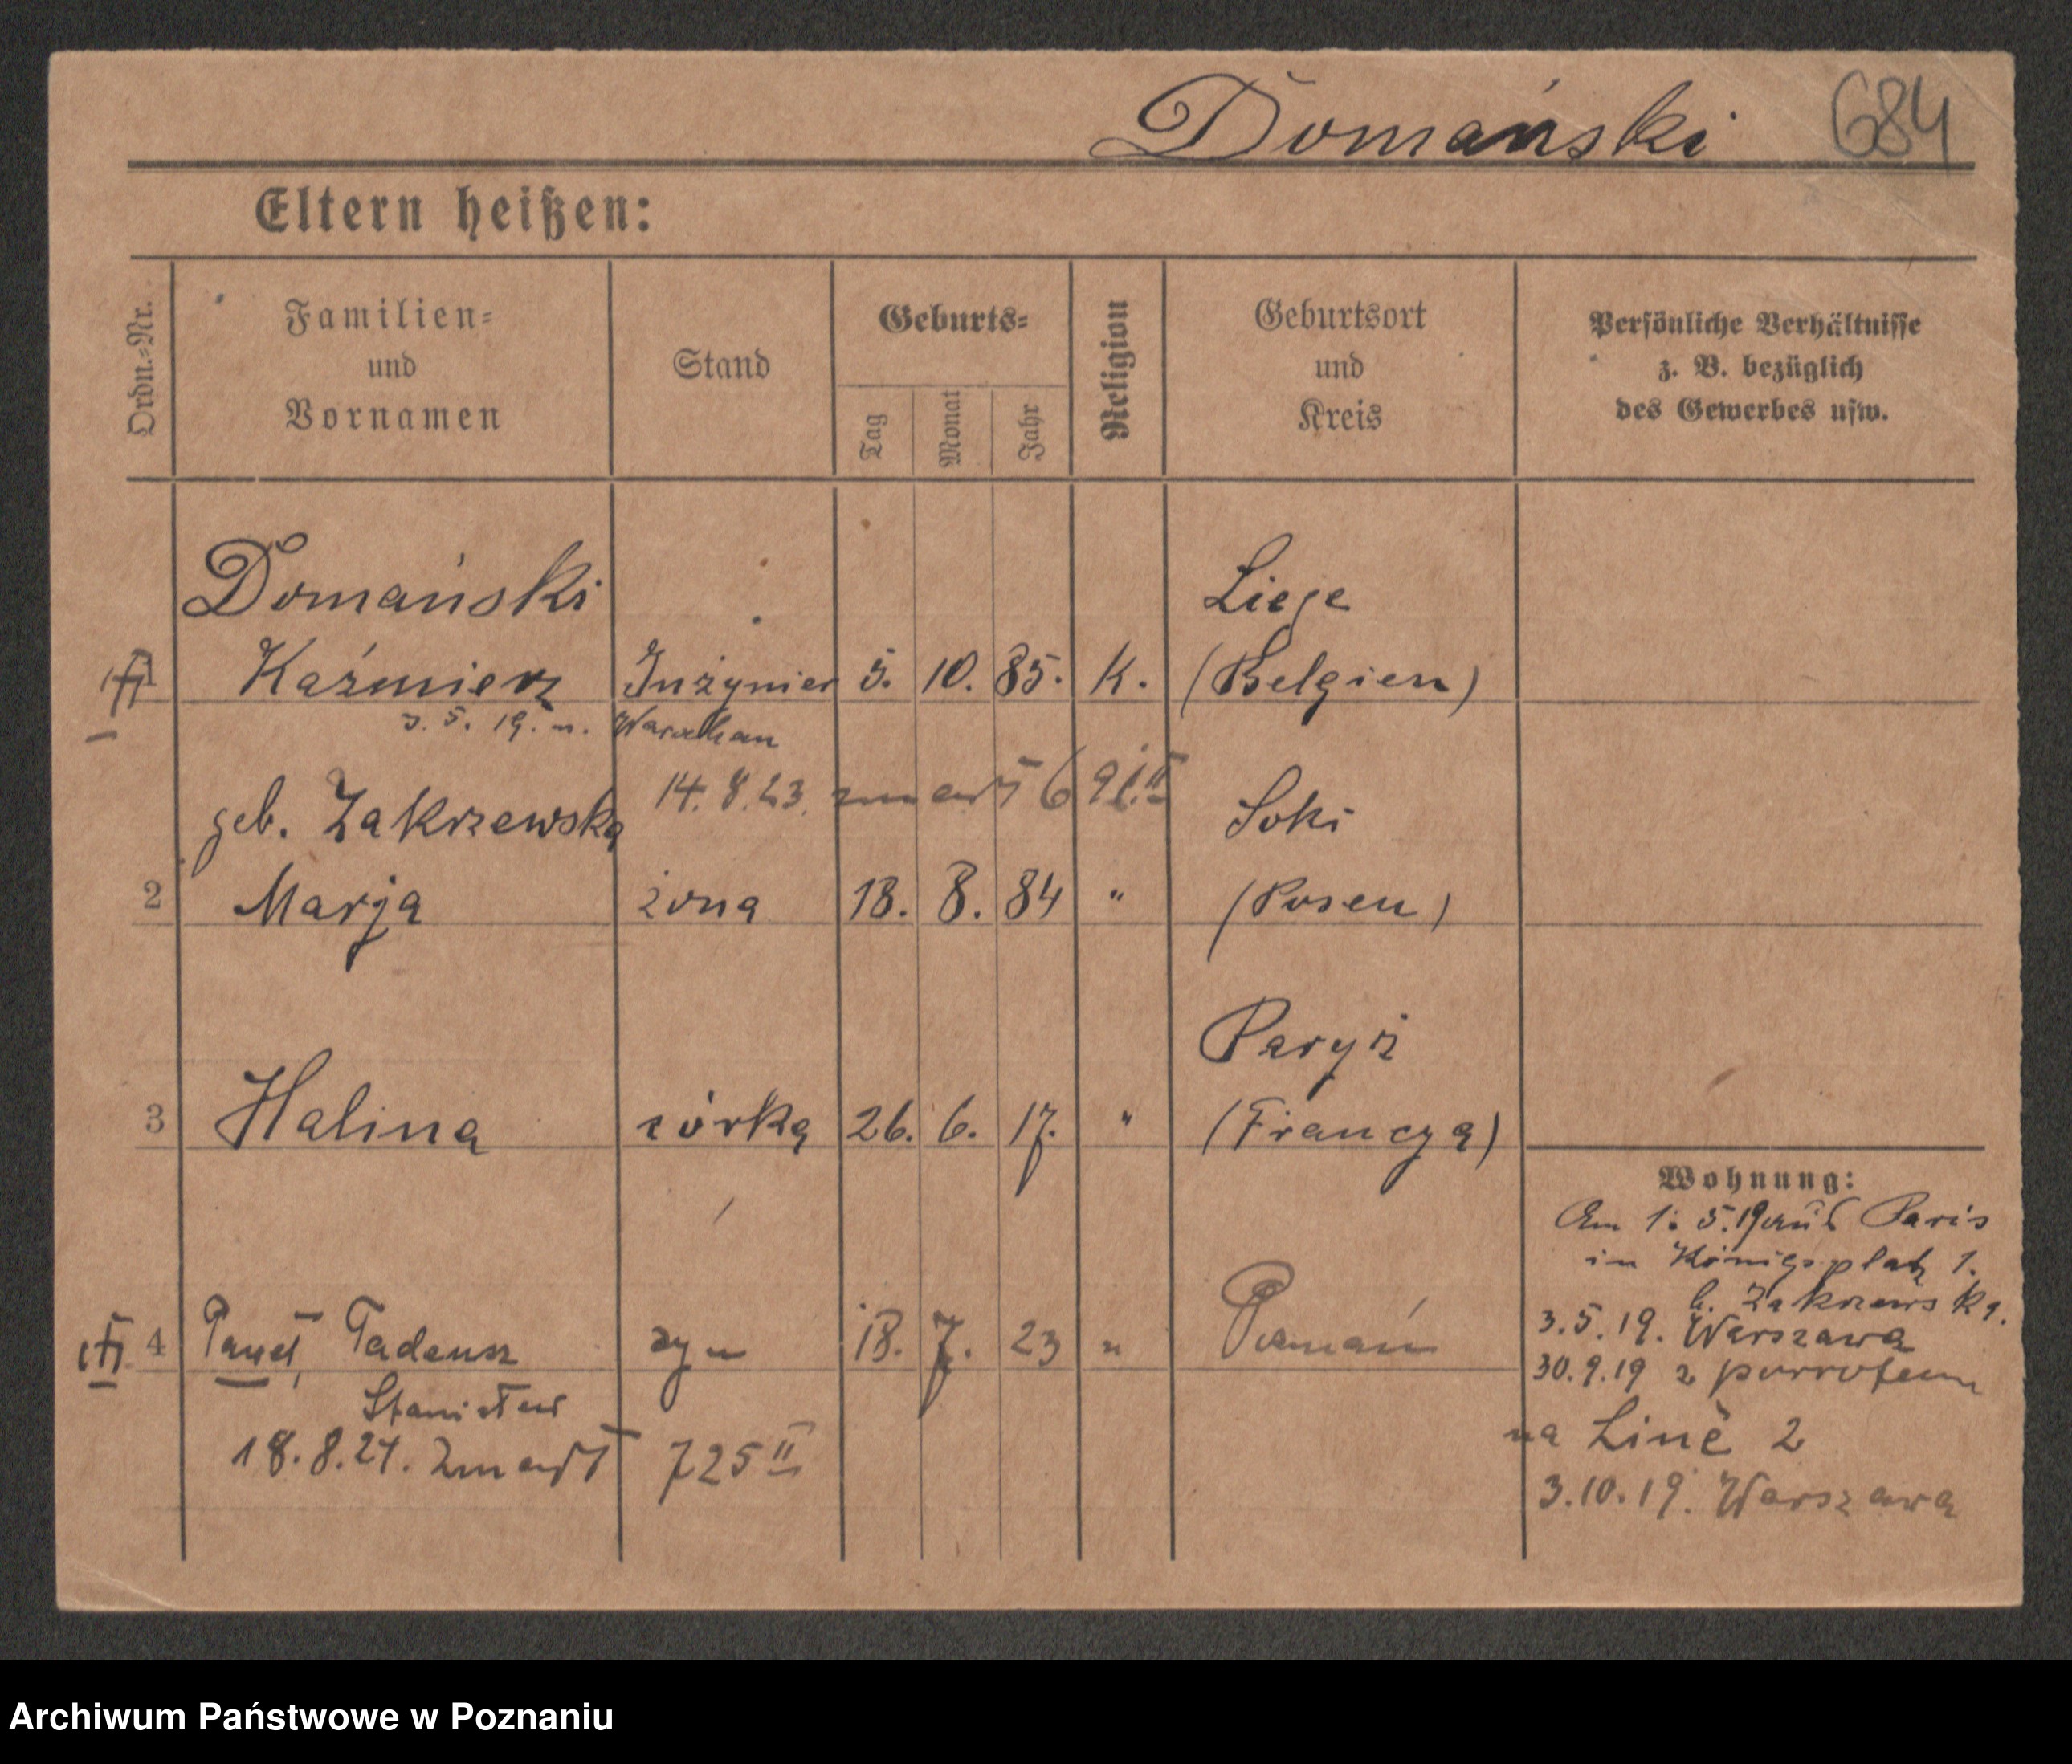 Domański 684
Eltern heißen:
Ordn.-Nr.
Familien-
und
Vornamen
Stand
Geburts-
Tag
Monat
Jahr
Religion
Geburtsort
und
Kreis
Persönliche Verhältnisse
z. B. bezüglich
des Gewerbes usw.
Domański Liege
1 Kaźmierz Inżynier 5. 10. 85. K. (Belgien)
3. 5. 19. n. Warschau
14. 8. 23. zmarł
geb. Zakrzewska Soki
2 Marja żona 18. 8. 84 " (Posen)
Paryż
3 Halina córka 26. 6. 17. " (Francya)
Wohnung:
Am 1. 5. 19 aus Paris
in Königsplatz 1.
b. Zakrzewska.
3.5.19. Warszawa
4 Paweł, Tadeusz syn 18. 7. 23 " Poznań
30.9.19 z powrotem
Stanisław
na Linè 2
18.8.24. Zmarł 725 II
3.10.19. Warszawa
Archiwum Państwowe w Poznaniu